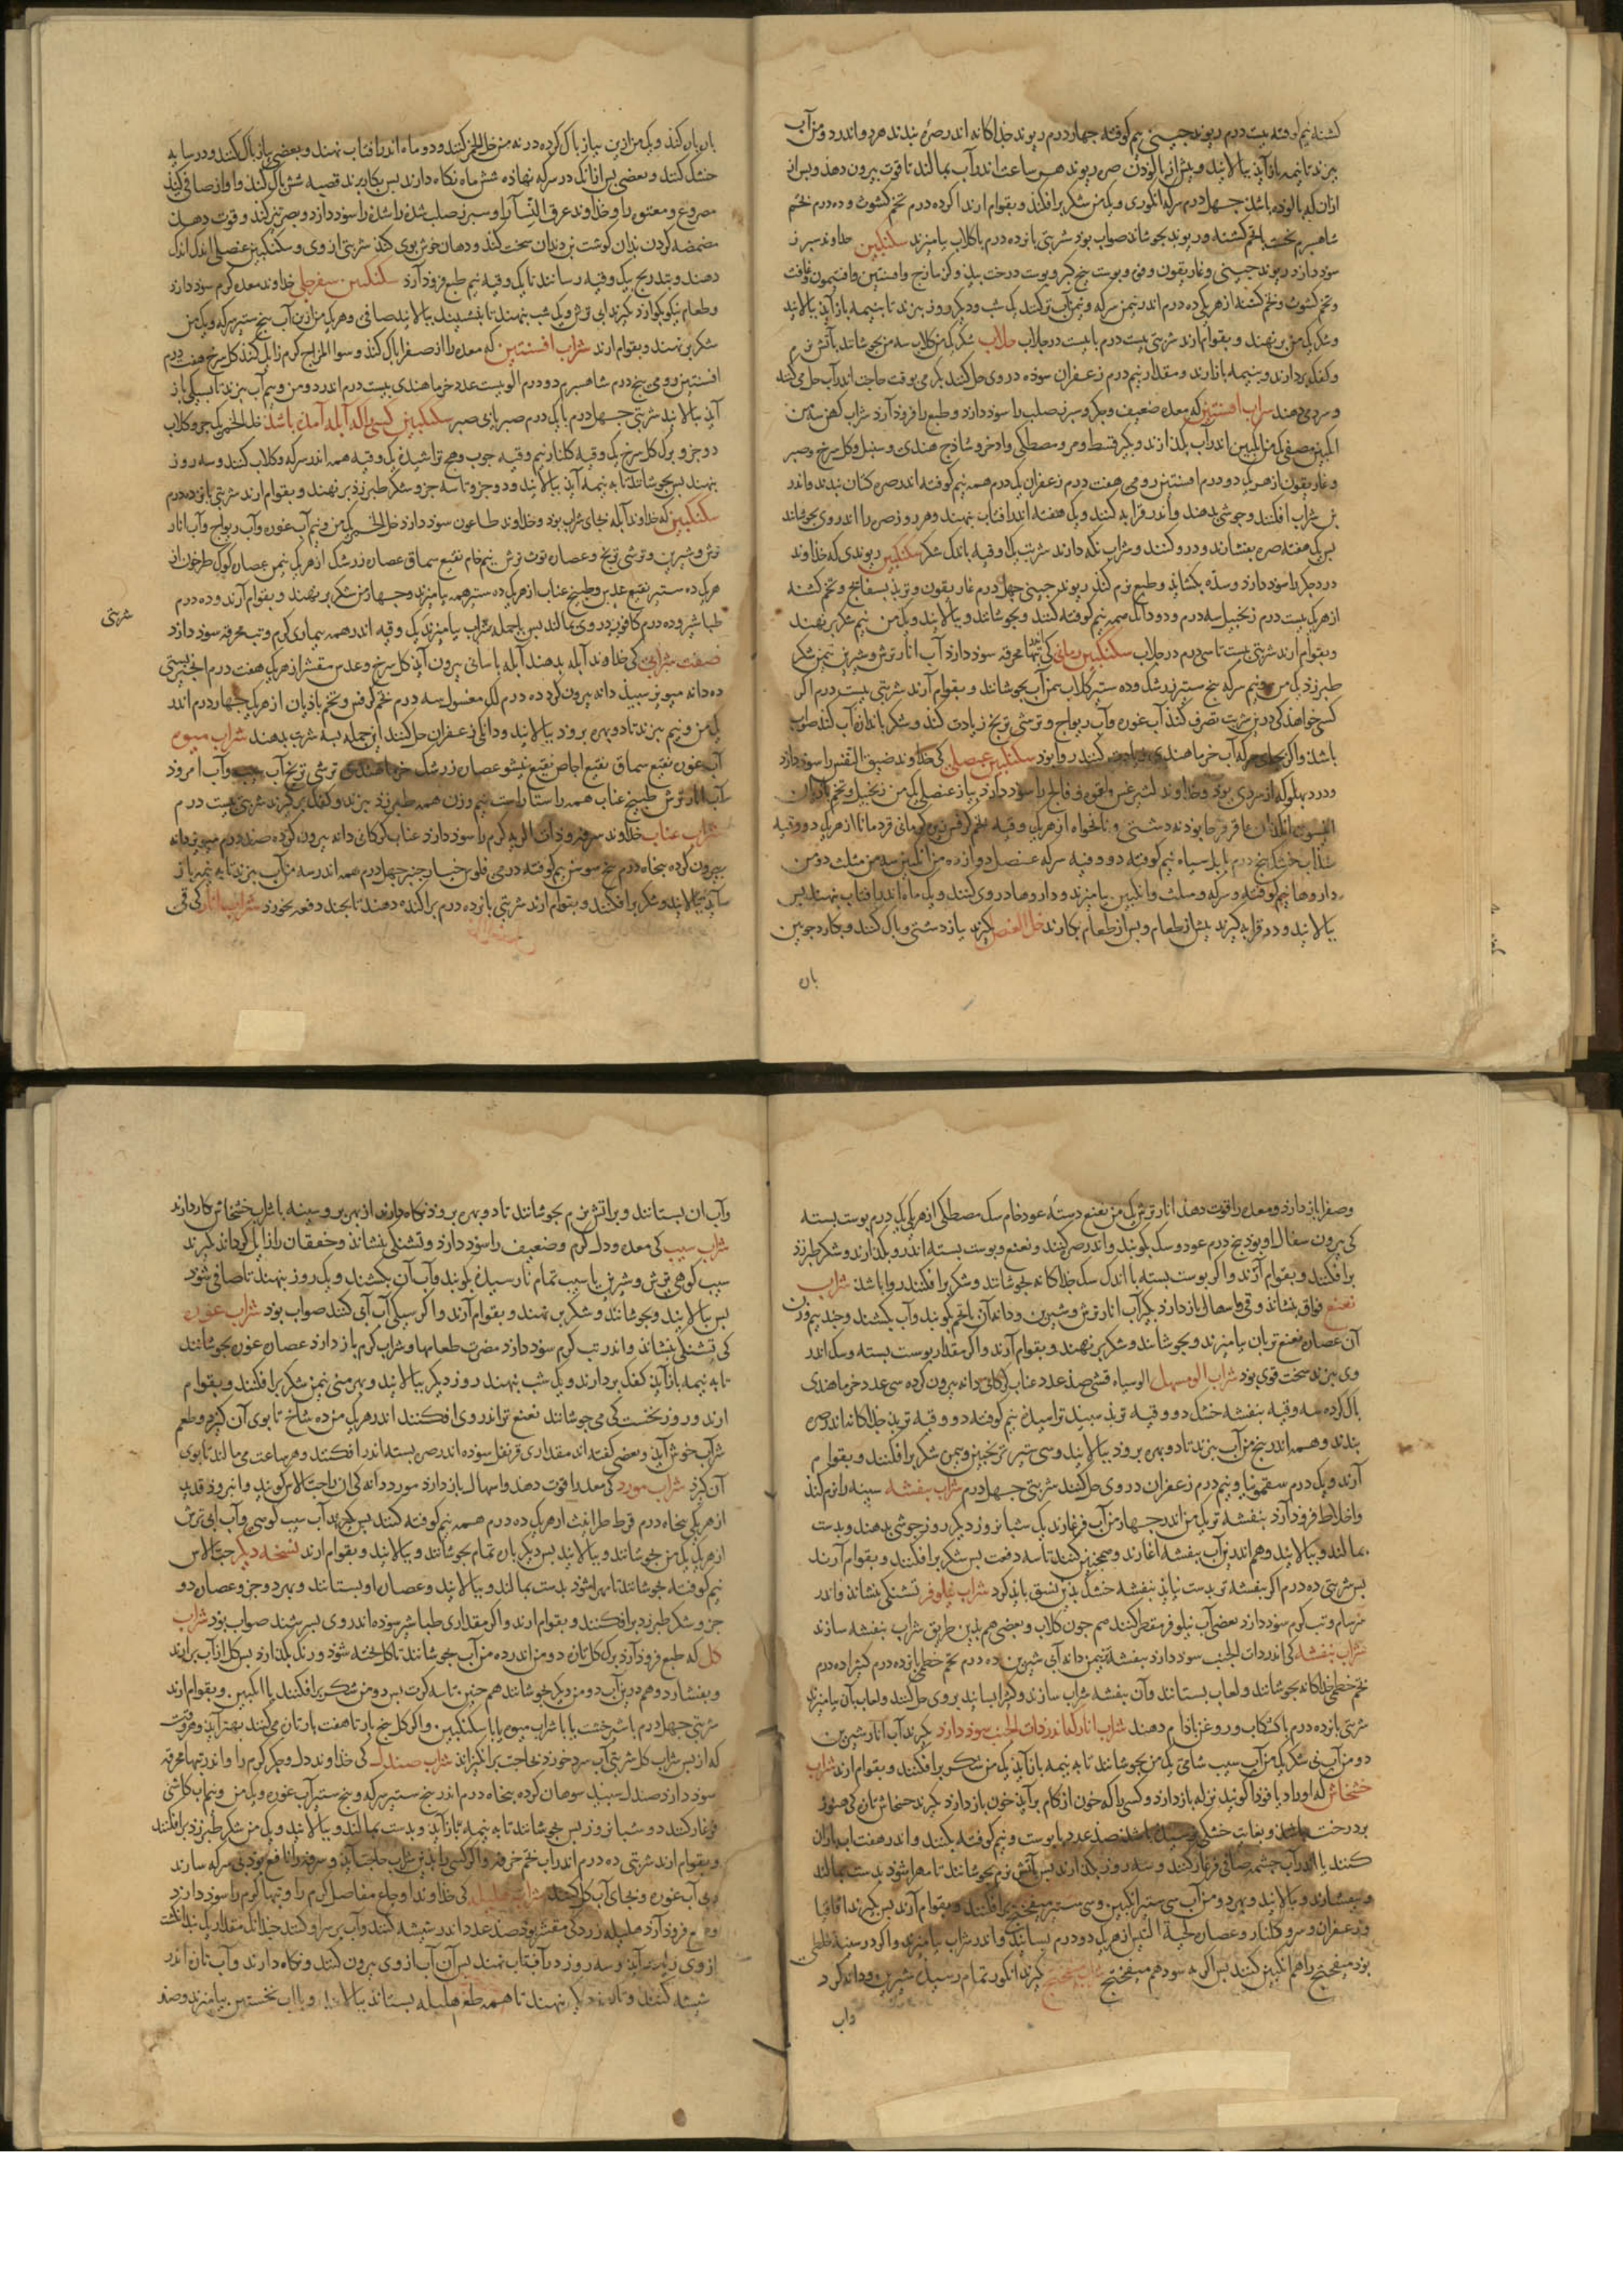 کشنه نیم کوفته بیست درم ریوند چینی نیم کوفته چهار درم ریوند جداکانه اندر صره بندند هر دو اندر دو من آب
بپزند تا بنیمه بازآید بپالایند و پیش از پالودن صره ریوند هر ساعت اندر آب بمالند تا قوت بیرون دهد و پس از
ازان که پالوده باشد چهل درم سرکه انکوری و یک من شکر برافکنند و بقوام ارند
شاهسپرم ریوند بجوشانند صواب بود شربتی پانزده درم با کلاب بیامیزند سکنکبین خداوند سپرز
سود دارد ریوند چینی و غاریقون و پوست بیخ کبر و پوست درخت بید و کزمازج و افسنتین و افتیمون
و تخم کشوث و تخم کشنه از هر یکی ده درم اندر نیم من سرکه و نیم من آب تر کنند یک شب و دیکر روز بپزند تا بنیمه بازآید بپالایند
و شکر یک من برنهند و بقوام ارند شربتی بیست درم با بیست درم جلاب جلاب شکر یک من کلاب سه من بجوشانند بآتش نرم
و کفک بردارند و بنیمه بازارند و مقدار نیم درم زعفران سوده در وی حل کنند
و سردی دهند شراب افسنتین که معده ضعیف و جکر و سپرز صلب را سود دارد و طبع را فرود آرد شراب کهن سه من
انکبین مصفی یک من انکبین اندر آب بکدازند و بکیرند قسط و مر و مصطکی و اذخر و ساذج هندی و سنبل و کل سرخ و صبر
و غاریقون از هر یک دو درم افسنتین رومی هفت درم زعفران یک درم همه نیم کوفته اندر صره کتان بندند و اندر
شراب افکنند و جوشی بدهند و اندر قرابه کنند و یک هفته اندر افتاب بنهند و هر روز صره را اندر وی بجوشانند
پس یک هفته صره بفشارند و دور کنند و شراب نکه دارند شربت یک اوقیه با اندک شکر سکنکبین ریوندی که خداوند
درد جکر را سود دارد و سده بکشاید و طبع نرم کند ریوند چینی چهل درم غاریقون و تربد بسفایج و تخم کشنه
از هر یک بیست درم زنجبیل سه درم و دو دانک همه نیم کوفته کنند و بجوشانند و بپالایند و یک من نیم شکر برنهند
و بقوام ارند شربتی بیست تا سی درم در جلاب سکنکبین رمانی کی تبهاء محرقه سود دارد آب انار ترش و شیرین نیم من شکر
طبرزد یک من و نیم سرکه پنج ستیر زرشک و ده ستیر کلاب یک من آب بجوشانند و بقوام آرند شربتی بیست درم اکر
کسی خواهد کی درین شربت تصرف کند آب غوره و آب ریواج و ترشی ترنج زیادت کند و شکر باندازه آب کند صواب
باشد و اکر بجای سرکه آب خرما هندی زیادت کنند روا بود سکنکبین عنصلی کی خداوند ضیق النفس را سود دارد
و درد پهلو که از سردی بود و خداوند لیثرغس و لقوه و فالج را سود دارد پیاز عنصلی یک من زنجبیل و تخم بادیان
انیسون انجدان عاقرقرحا پودنه دشتی و نانخواه از هر یک وقیه تخم کرفس زیره کرمانی قردمانا از هر یک دو وقیه
سداب خشک پنج درم پلپل سیاه نیم کوفته دو وقیه سرکه عنصل دوازده من انکبین سه من مثلث دو من
داروها نیم کوفته و سرکه و مثلث و انکبین بیامیزند و داروها در وی کنند و یک ماه اندر افتاب بنهند پس
بپالایند و در قرابه کیرند پیش از طعام و پس از طعام بکار دارند خل العنصل بکیرند پیاز دشتی و پاک کنند و بکارد چوبین
پاره
پاره پاره کنند و یک من ازین پیاز پاک کرده در نه من خل الخمر کنند و دو ماه اندر افتاب نهند و بعضی پیاز پاک کنند و در سایه
خشک کنند و بعضی پس ازانک در سرکه نهاده شش ماه نکاه دارند پس بکار برند قصبه شش پاک کند و اواز صافی کند
مصروع و معتوه را و خداوند عرق النسا را و سپرز صلب شده را سود دارد و بصر تیز کند و قوت دهد
مضمضه کردن بدان کوشت بن دندان سخت کند و دهان خوش بوی کند شربتی از وی و سکنکبین عنصلی اندک اندک
دهند و بتدریج بیک وقیه رسانند تا یک وقیه نیم طبع فرود آرد سکنکبین سفرجلی خداوند معده کرم سود دارد
و طعام نیکو کوارد بکیرند آبی ترش و یک شب بنهند تا بنشیند بپالایند صافی و هر یک من ازین آب پنج ستیر سرکه و یک من
شکر برنهند و بقوام ارند شراب افسنتین که معده را از صفرا پاک کند و سوء المزاج کرم زایل کند کل سرخ هفت درم
افسنتین رومی پنج درم شاهسپرم دو درم الو بیست عدد خرما هندی بیست درم اندر دو من و نیم آب بپزند تا
آید بپالایند شربتی چهل درم با یک درم صبر سکنکبین کسی را که آبله آمده باشد خل الخمر یک جزو کلاب
دو جزو برک کل سرخ یک وقیه کلنار نیم وقیه چوب وج تراشیده یک وقیه همه اندر سرکه و کلاب کنند و سه روز
بنهند پس بجوشانند تا به نیمه آید بپالایند و دو جزو تا سه جزو شکر طبرزد برنهند و بقوام ارند شربتی پانزده درم
سکنکبین که خداوند آبله بجای شراب بود و خداوند طاعون سود دارد خل الخمر یک من و نیم آب غوره و آب ریواج و آب انار
ترش و شیرین و ترشی ترنج و عصاره توث ترش نیم خام نقیع سماق عصاره زرشک از هر یک نیم من عصاره کوک طرخون از
هر یک ده ستیر نقیع عدس و طبیخ عناب از هر یک ده ستیر همه بیامیزند و چهار من شکر برنهند و بقوام آرند و ده درم
طباشیر و ده درم کافور در وی بمالند پس باجمله شراب بیامیزند یک وقیه اندر همه بیماری کرم و تب محرقه سود دارد
شربتی
صفت شرابی کی خداوند آبله بدهند آبله باسانی بیرون آید کل سرخ و عدس مقشر از هر یک هفت درم انجیر بستی
ده دانه میویز سپید دانه بیرون کرده ده درم لک مغسول سه درم تخم کرفس و تخم بادیان از هر یک چهار درم اندر
یک من و نیم بپزند تا دو بهره برود بپالایند و دانکی زعفران حل کنند این جمله بسه شربت بدهند شراب میوه
آب غوره نقیع سماق نقیع اجاص نقیع نیشو عصاره زرشک خرما هندی ترشی ترنج آب سیب و آب امرود
آب انار ترش طبیخ عناب همه راستا راست نیم وزن همه طبرزد بپزند و کفک برکیرند شربتی بیست درم
شراب عناب خداوند سرفه و ذات الریه کرم را سود دارد عناب کرکانی دانه بیرون کرده صد درم میویز دانه
بیرون کرده پنجاه درم بیخ سوسن نیم کوفته درمی فلوس خیار چنبر چهل درم همه اندر سه من آب بپزند تا به نیمه باز
آید بپالایند و شکر برافکنند و بقوام ارند شربتی پانزده درم پراکنده دهند تا بچند دفعه بخورد شراب انار کی قی
وصفرا بازدارد و معده را قوت دهد انار ترش یک من نعنع دسته عود خام سک مصطکی از هر یکی یک درم پوست پسته
کی بیرون سفال او بود پنج درم عود و سک بکوبند و اندر صره کنند و نعنع و پوست پسته اندرو بکدارند و شکر طبرزد
برافکنند و بقوام آرند و اکر پوست پسته با اندک سک جداکانه بجوشانند و شکر برافکنند روا باشد شراب
نعنع فواق بنشاند و قی و اسهال بازدارد بکیرند آب انار ترش و شیرین و دانه آن با تخم بکوبند و آب بکشند و چند نیم وزن
آن عصاره نعنع تر بان بیامیزند و بجوشانند و شکر برنهند و بقوام آرند و اکر مقدار پوست پسته و سک اندر
وی بپزند سخت قوی بود شراب الو مسهل الو سیاه قشی صد عدد عناب کرکانی دانه بیرون کرده سی عدد خرما هندی
پاک کرده سه وقیه بنفشه خشک دو وقیه تربد سپید تراشیده نیم کوفته دو وقیه تربد جداکانه اندر صره
بندند و همه اندر پنج من آب بپزند تا دو بهره برود بپالایند و سی ستیر ترنجبین و نیم من شکر برافکنند و بقوام
آرند و یک درم سقمونیا و نیم درم زعفران در وی حل کنند شربتی چهل درم شراب بنفشه سینه را نرم کند
و اخلاط فرود آرد بنفشه تر یک من اندر چهار من آب فرغارند یک شبانروز دیکر روز جوشی بدهند و بدست
بمالند و بپالایند و هم اندرین آب بنفشه اغارند و همچنین کنند تا سه دفعت پس شکر برافکنند و بقوام آرند
پس شربتی ده درم اکر بنفشه تر بدست نیاید بنفشه خشک بدین نسق باید کرد شراب نیلوفر تشنکی بنشاند و اندر
سرسام و تب کرم سود دارد بعضی آب نیلوفر مقطر کنند هم چون کلاب و بعضی هم بدین طریق شراب بنفشه سازند
شراب بنفشه کی اندر ذات الجنب سود دارد بنفشه نیم من دانه آبی شیرین ده درم تخم خطمی پانزده درم کثیرا ده درم
تخم خطمی جداکانه بجوشانند و لعاب بستانند و آن بنفشه شراب سازند و کثیرا بسایند بر وی حل کنند و لعاب بآن بیامیزند
شربتی پانزده درم با کشکاب و روغن بادام دهند شراب انار که اندر ذات الجنب سود دارد بکیرند آب انار شیرین
دو من آب نی شکر یک من آب سیب شامی یک من بجوشانند تا به نیمه بازآید یک من شکر برافکنند و بقوام ارند شراب
خشخاش که نزله بازدارد و کسی را که خون از کام برآید خون بازدارد بکیرند خشخاش تازه کی هنوز
بر درخت باشد و بغایت خشکی نرسیده باشد صد عدد با پوست و نیم کوفته بکنند و اندر هفت من آب باران
کنند یا اندر آب چشمه صافی فرغار کنند و سه روز بکدارند پس بآتش نرم بجوشانند تا مهرا شود بدست بمالند
و بفشارند و بپالایند و بهر دو من آب سی ستیر انکبین و سی ستیر میفختج برافکنند و بقوام آرند پس بکیرند اقاقیا
و زعفران و مر و کلنار و عصاره لحیة التیس از هر یک دو درم بسایند و اندر شراب بیامیزند و اکر در سینه غلطی
بود میفختج را هم انکبین کنند پس اکر نه بود هم میفختج شراب میفختج بکیرند انکور تمام رسیده شیرین و دانه کرد
واب
وآب ان بستانند و بر اتش نرم بجوشانند تا دو بهره برود نکاه دارند از بهر سینه با شراب خشخاش بکار دارند
شراب سیب کی معده و دل کرم و ضعیف را سود دارد و تشنکی بنشاند و خفقان را زایل کرداند بکیرند
سیب کوهی ترش و شیرین یا سیب تمام نارسیده بکوبند و آب آن بکشند و یک روز بنهند تا صافی شود
پس بپالایند و بجوشانند و شکر برنهند و بقوام آرند و اکر سیکی آب آبی کنند صواب بود شراب غوره
کی تشنکی بنشاند و اندر تب کرم سود دارد مضرت طعامها و شراب کرم باز دارد عصاره غوره بجوشانند
تا به نیمه بازآید کفک بردارند و یک شب بنهند روز دیکر بپالایند و بهر منی نیم من شکر برافکنند و بقوام
ارند و روز نخست کی می جوشانند نعنع تر اندر وی افکنند اندر هر یک من ده شاخ تا بوی آن کیرد و طعم
شراب خوش آید و بعضی کفته اند مقداری قرنفل سوده اندر صره بسته اندر افکنند و هر ساعت می مالند تا بوی
آن کیرد شراب مورد کی معده را قوت دهد و اسهال بازدارد مورد دانه کی ان را حب الاس کویند و انبرود قدید
از هر یکی پنجاه درم قرط طراثیث از هر یک ده درم همه نیم کوفته کنند پس بکیرند آب سیب کوسی و آب آبی ترش
از هر یک یک من بجوشانند و بپالایند پس دیکر باره تمام بجوشانند و بپالایند و بقوام ارند نسخه دیکر حب الاس
نیم کوفته بجوشانند تا مهرا شود بدست بمالند و بپالایند و عصاره او بستانند و بهر دو جزو عصاره دو
جزو شکر طبرزد برافکنند و بقوام ارند و اکر مقداری طباشیر سوده اندر وی بسرشند صواب بود شراب
کل که طبع فرود آرد برک کل تازه دو من اندر ده من آب بجوشانند تا کل پخته شود و رنک بکدارد پس کل از آب برارند
و بفشارند و هم درین آب دو من دیکر بجوشانند هم چنین تا سه کرت پس دو من شکر برافکنند یا انکبین و بقوام ارند
شربتی چهل درم با شیرخشت یا با شراب میوه یا با سکنکبین و اکر کل پنج بار تا هفت بار تازه می کنند بهتر آید و هر وقت
که از پس شراب کل شربتی آب سرد خورد بحاجت برانکیزاند شراب صندل کی خداوند دل و جکر کرم را و اندر تبها محرقه
سود دارد صندل سپید سوهان کرده پنجاه درم اندر پنج ستیر سرکه و پنج ستیر آب غوره و یک من و نیم آب
فرغار کنند دو شبانروز پس بجوشانند تا به نیمه بازآید و بدست بمالند و بپالایند و یک من شکر طبرزد برافکنند
و بقوام ارند شربتی ده درم اندر آب تخم خرفه و اکر کسی را بدین شراب حاجت آید و سرفه را نافع بود بی سرکه سازند
و بی آب غوره و بجای آب کل کنند شراب هلیله کی خداوند اوجاع مفاصل کرم را و تبهاء کرم را سود دارد
و طبع فرود آرد هلیله زرد کی مقشر بود صد عدد اندر شیشه کنند و آب بر سر او کنند چندانک مقدار یک بدست
از وی زیادت آید و سه روز در آفتاب نهند پس آن آب از وی بیرون کنند و نکاه دارند و آب تازه اندر
شیشه کنند و تازه دیکر بنهند تا همه طعم هلیله بستاند بپالایند و با آب نخستین بیامیزند و صد